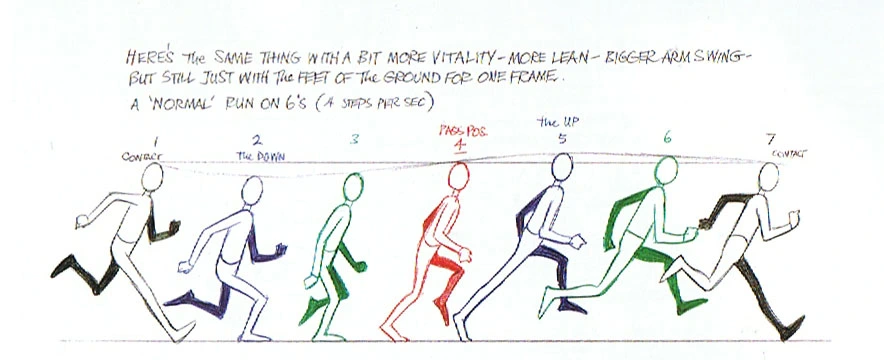 HERE'S The SAME THING WITH A BIT MORE VITALITY - MORE LEAN - BIGGER ARM SWING -
BUT STILL JUST WITH The FEET OF The GROUND FOR ONE FRAME.
A 'NORMAL' RUN ON 6'S (4 STEPS PER SEC)
1
CONTACT
2
The DOWN
3
PASS POS.
4
the UP
5
6
7
CONTACT